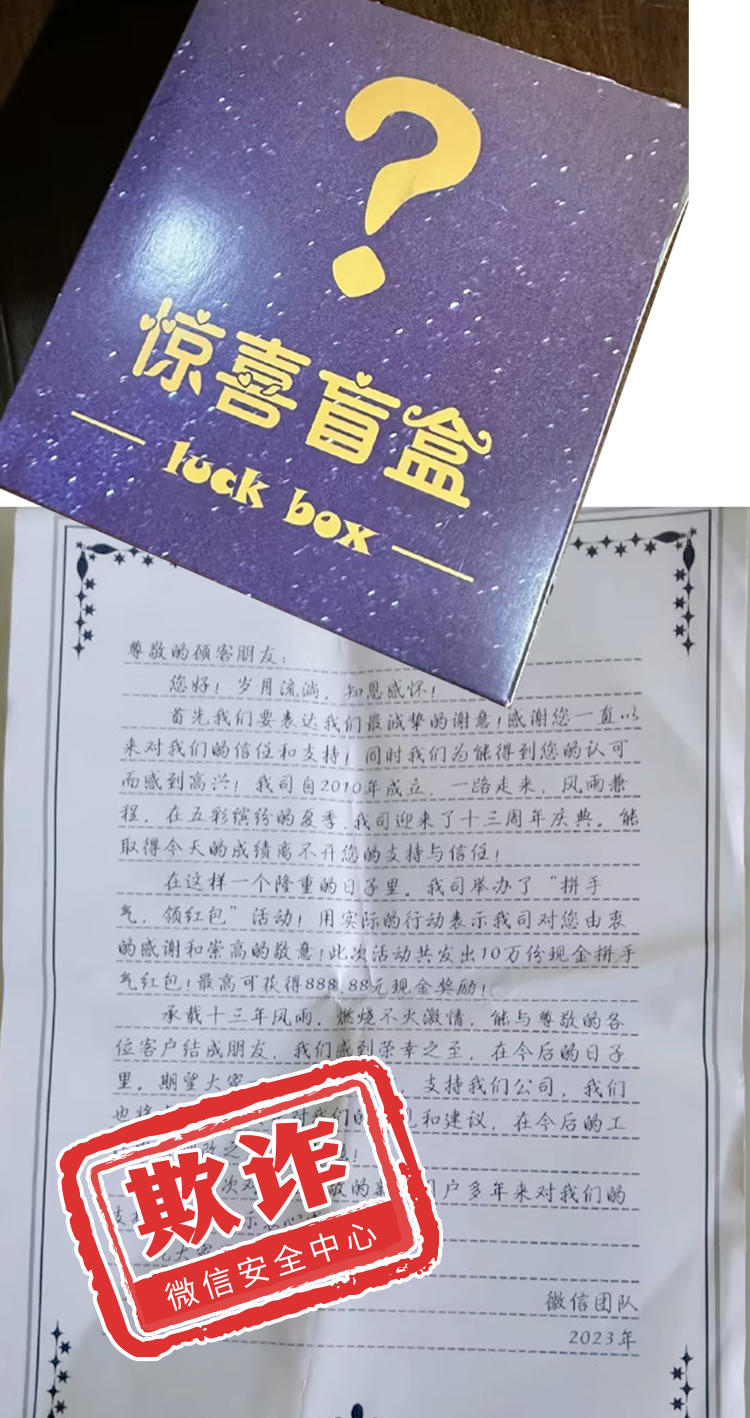 ?
惊喜盲盒
luck box
尊敬的顾客朋友：
您好！岁月流淌，知恩感怀！
首先我们要表达我们最诚挚的谢意！感谢您一直以
来对我们的信任和支持！同时我们为能得到您的认可
而感到高兴！我司自2010年成立，一路走来，风雨兼
程，在五彩缤纷的夏季，我司迎来了十三周年庆典。能
取得今天的成绩离不开您的支持与信任！
在这样一个隆重的日子里，我司举办了“拼手
气，领红包”活动！用实际的行动表示我司对您由衷
的感谢和崇高的敬意！此次活动共发出10万份现金拼手
气红包！最高可获得888.88元现金奖励！
承载十三年风雨，燃烧不火激情，能与尊敬的各
位客户结成朋友，我们感到荣幸之至，在今后的日子
里，期望大家 支持我们公司，我们
也将 对我们的 见和建议，在今后的工
次对 敬的新 用户多年来对我们的
欺诈
微信安全中心
微信团队
2023年